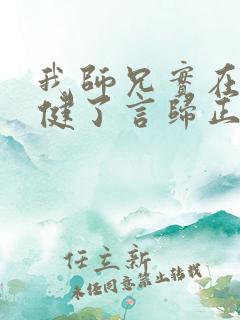 我师兄实在
健了言归正
任立新
未经同意禁止转载